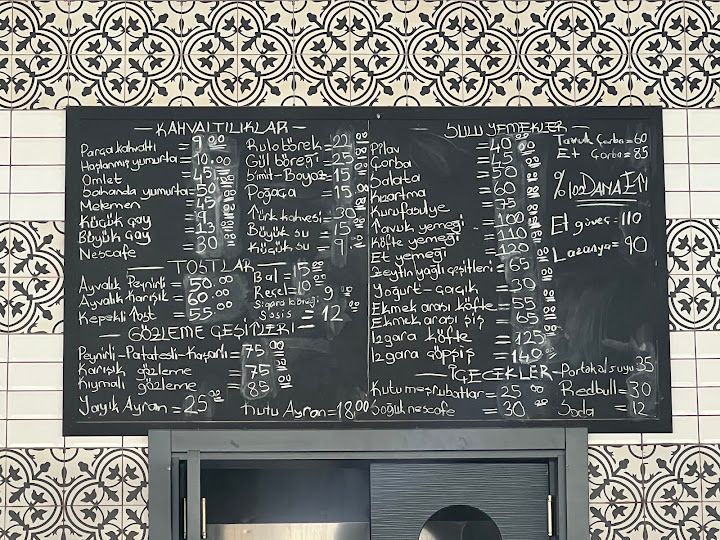 — KAHVALTILIKLAR —
Parça kahvaltı = 9.00
Haşlanmış yumurta = 10.00
Omlet = 45
Sahanda yumurta = 50
Melemen = 45
Küçük çay = 9
Büyük çay = 13
Nescafe = 30
Rulo börek = 22
Gül böreği = 25
Simit - Boyoz = 15
Poğaça = 15
Türk kahvesi = 30
Büyük su = 15
Küçük su = 9
— TOSTLAR —
Ayvalık Peynirli = 50.00
Ayvalık Karışık = 60.00
Kepekli Tost = 55.00
Bal = 15
Reçel = 10
Sigara böreği = 9
Sosis = 12
GÖZLEME ÇEŞİTLERİ —
Peynirli-Patatesli-Kaşarlı = 75
Karışık gözleme = 75
Kıymalı gözleme = 85
Yayık Ayran = 25.00
Kutu Ayran = 18.00
— SULU YEMEKLER —
Pilav = 40
Çorba = 45
Salata = 50
Kızartma = 60
Kurufasulye = 75
Tavuk yemeği = 100
Köfte yemeği = 110
Et yemeği = 120
Zeytin yağlı çeşitleri = 65
Yoğurt - Cacık = 30
Ekmek arası köfte = 55
Ekmek arası şiş = 65
Izgara köfte = 125
Izgara çöpşiş = 140
Tavuk Çorba = 60
Et Çorba = 85
%100 DANA ETİ
Et güveç = 110
Lazanya = 90
— İÇECEKLER —
Kutu meşrubatlar = 25
Soğuk nescafe = 30
Portakal suyu 35
Redbull = 30
Soda = 12